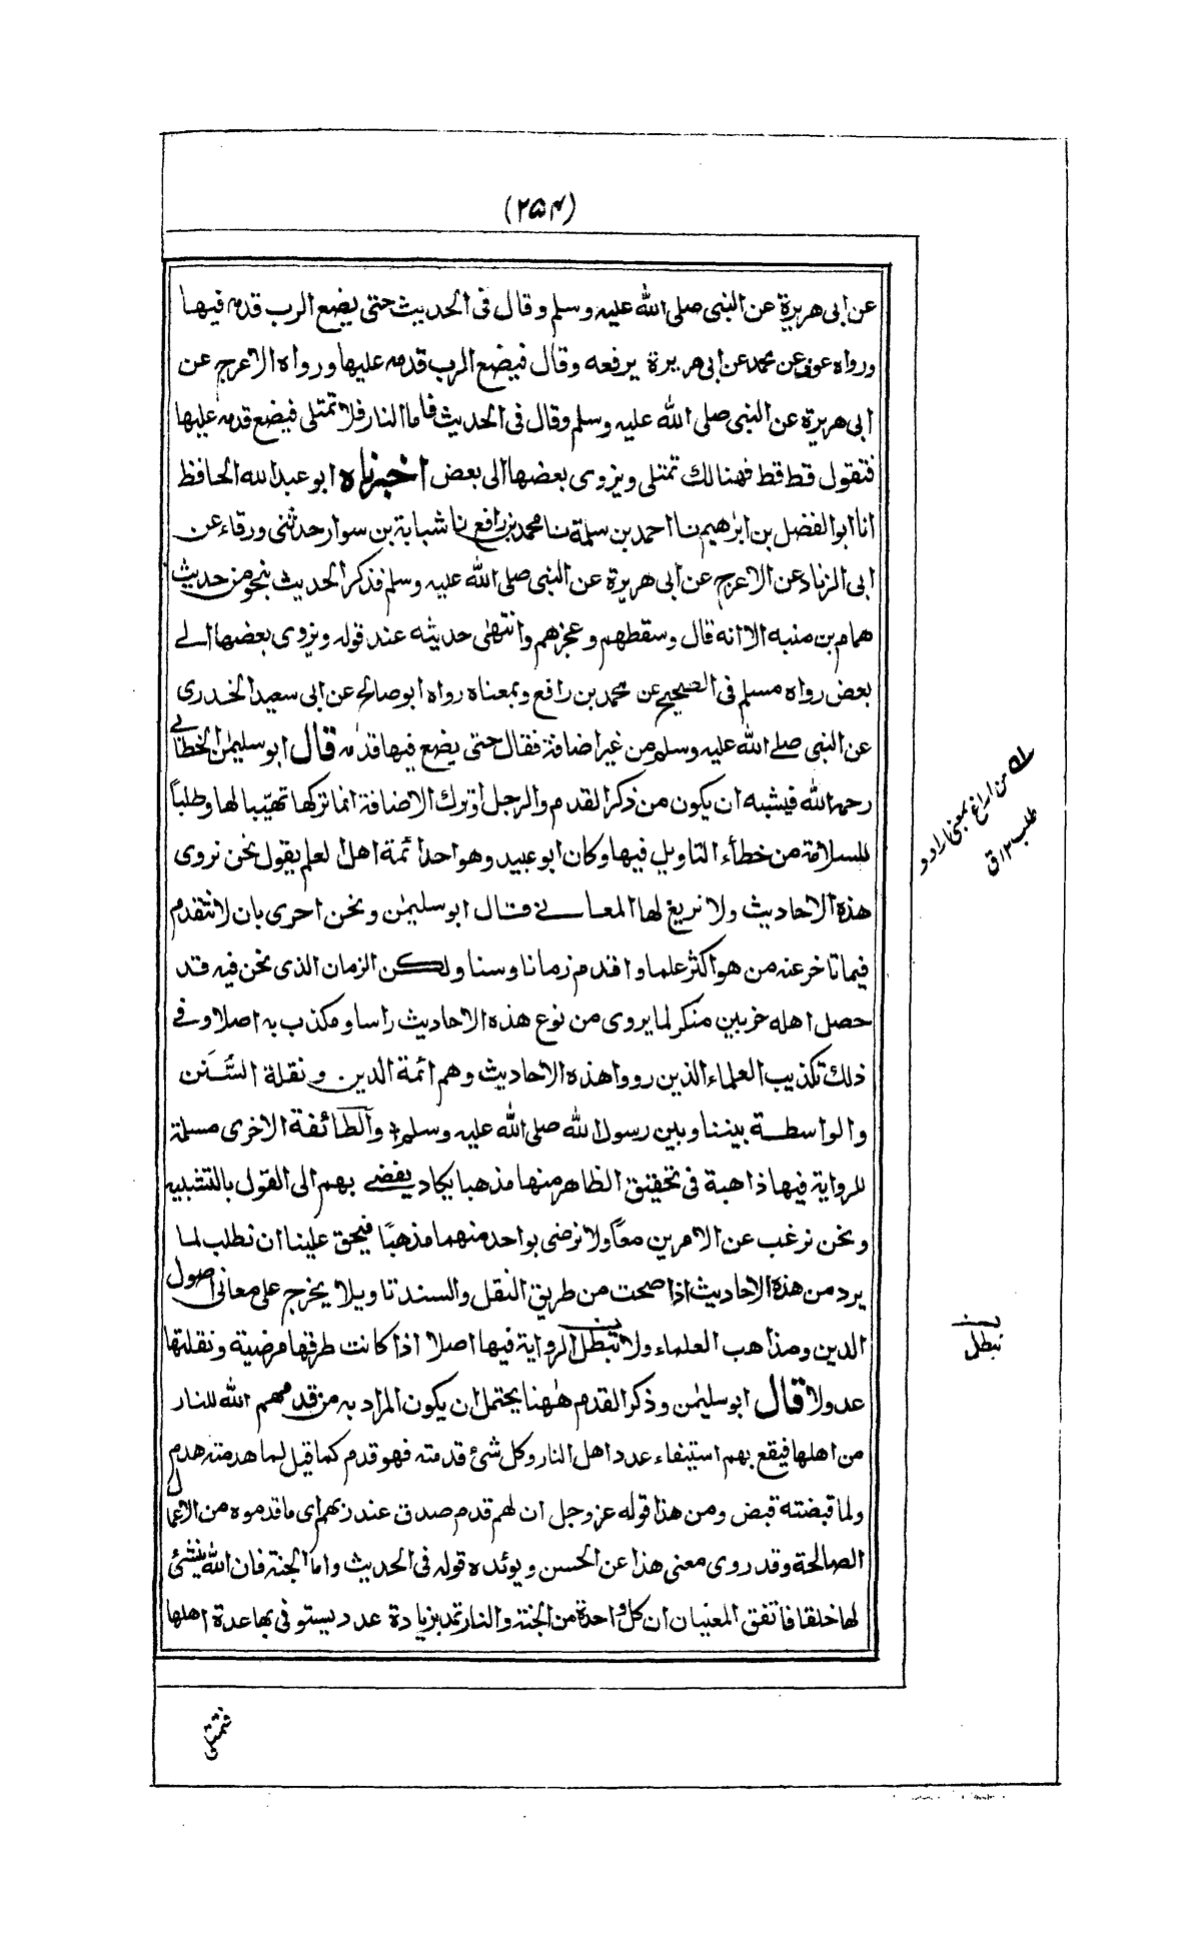 (۲۵۴)
عن ابی هریرة عن النبی صلی الله علیه وسلم وقال فی الحدیث حتی یضع الرب قدمه فیها
ورواه عوف عن محمد عن ابی هریرة یرفعه وقال فیضع الرب قدمه علیها ورواه الاعرج عن
ابی هریرة عن النبی صلی الله علیه وسلم وقال فی الحدیث فاما النار فلا تمتلی فیضع قدمه علیها
فتقول قط قط فهنالك تمتلی ویزوی بعضها الی بعض اخبرناه ابو عبد الله الحافظ
انا ابو الفضل بن ابرٰهیم نا احمد بن سلمة نا محمد بن رافع نا شبابة بن سوار حدثنی ورقاء عن
ابی الزناد عن الاعرج عن ابی هریرة عن النبی صلی الله علیه وسلم فذکر الحدیث بنحو من حدیث
همام بن منبه الا انه قال وسقطهم وعجزهم وانتهٰی حدیثه عند قوله ویزوی بعضها الے
بعض رواه مسلم فی الصحیح عن محمد بن رافع وبمعناه رواه ابو صالح عن ابی سعید الخدری
عن النبی صلے الله علیه وسلم من غیر اضافة فقال حتی یضع فیها قدمه قال ابو سلیمٰن الخطابے
رحمه الله فیشبه ان یکون من ذکر القدم والرجل او ترك الاضافة انما ترکها تهیّبا لها وطلباً
للسلامة من خطأء التاویل فیها وکان ابو عبید وهو احد ائمة اهل العلم یقول نحن نروی
هذه الاحادیث ولا نریغ لها المعانے قال ابو سلیمٰن ونحن احری بان لا نتقدم
فیما تاخر عنه من هو اکثر علما واقدم زمانا وسنا ولکن الزمان الذی نحن فیه قد
حصل اهله حزبین منکر لما یروی من نوع هذه الاحادیث راسا ومکذب به اصلا وفے
ذلك تکذیب العلماء الذین رووا هذه الاحادیث وهم ائمة الدین ونقلة السُّنَن
والواسطة بیننا وبین رسول الله صلی الله علیه وسلم والطائفة الاخری مسلمة
للروایة فیها ذاهبة فی تحقیق الظاهر منها مذهبا یکاد یفضے بهم الی القول بالتشبیه
ونحن نرغب عن الامرین معًا ولا نرضی بواحد منهما مذهبًا فیحق علینا ان نطلب لما
یرد من هذه الاحادیث اذا صحت من طریق النقل والسند تاویلا یخرج علی معانی اصول
الدین ومذاهب العلماء ولا تبطل الروایة فیها اصلا اذا کانت طرقها مرضیة ونقلتها
عدولا قال ابو سلیمٰن وذکر القدم هٰهنا یحتمل ان یکون المراد به من قدمهم الله للنار
من اهلها فیقع بهم استیفاء عدد اهل النار وکل شئ قدمته فهو قدم کما قیل لما هدمته هدم
ولما قبضته قبض ومن هذا قوله عز وجل ان لهم قدم صدق عند ربهم ای ما قدموه من الاعمال
الصالحة وقد روی معنی هذا عن الحسن ویوئده قوله فی الحدیث واما الجنة فان الله ینشئ
لها خلقا فاتفق المعنیان ان کل واحدة من الجنة والنار تمد بزیادة عدد یستوفی بها عدة اهلها
من اراغ بمعنی اراد و
طلب ۱۲ ق
تبطل
فتمتلی